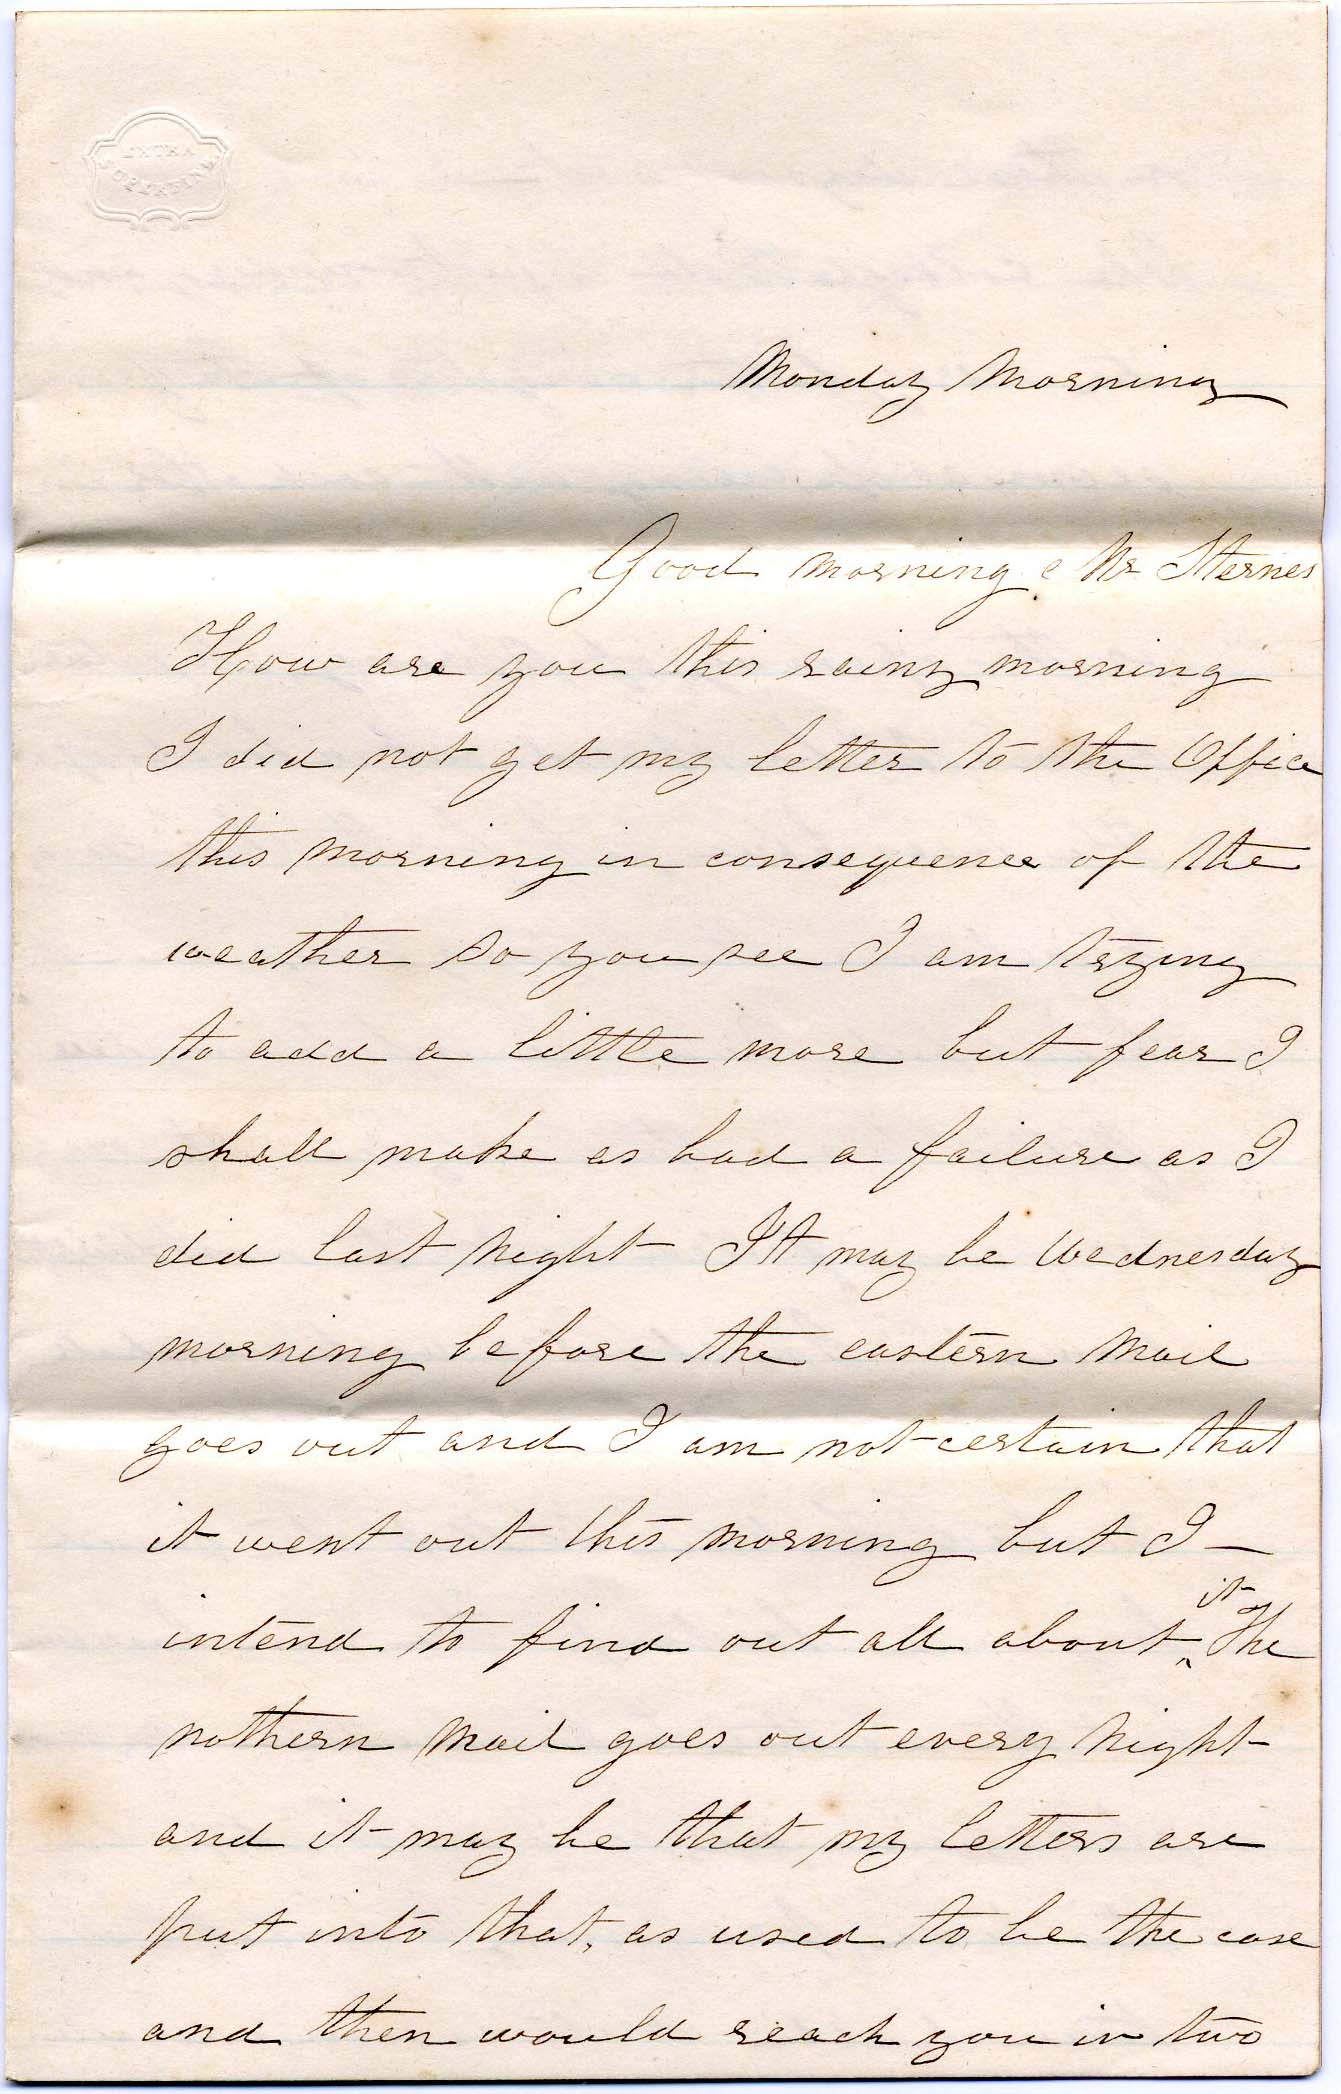 EXTRA
SUPERFINE
Monday Morning
Good morning Mr Sternes
How are you this rainy morning
I did not get my letter to the Office
this morning in consequence of the
weather so you see I am trying
to add a little more but fear I
shall make as bad a failure as I
did last night It may be Wednesday
morning before the eastern mail
goes out and I am not certain that
it went out this morning but I —
intend to find out all about it The
nothern mail goes out every night
and it may be that my letters are
put into that, as used to be the case
and then would reach you in two